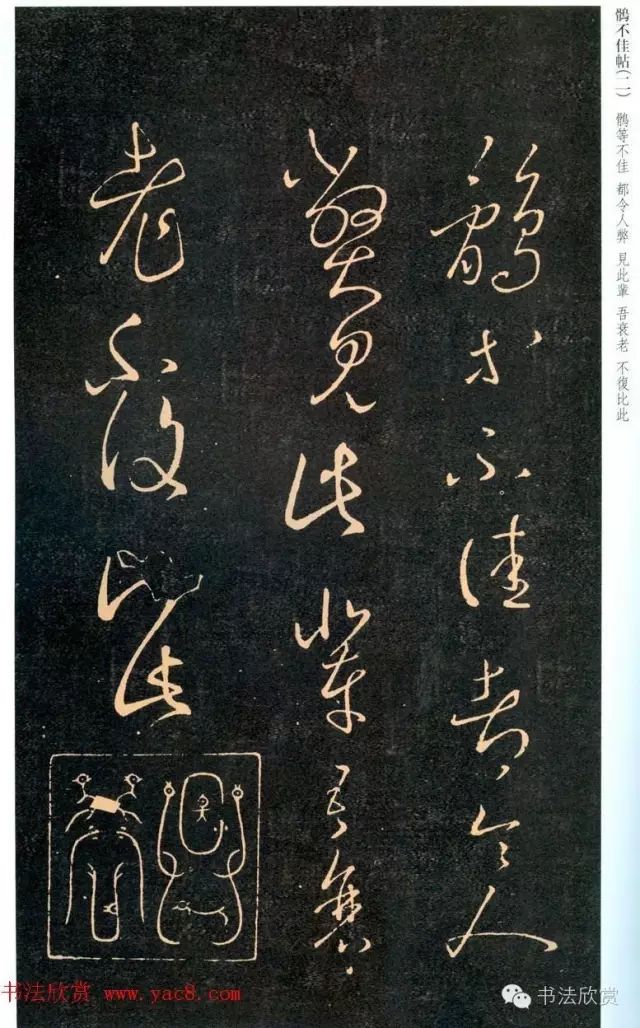 鶻不佳帖(二) 鶻等不佳 都令人弊 見此輩 吾衰老 不復比此
鶻等不佳都令人
弊見此輩吾衰
老不復比此
书法欣赏 www.yac8.com
书法欣赏